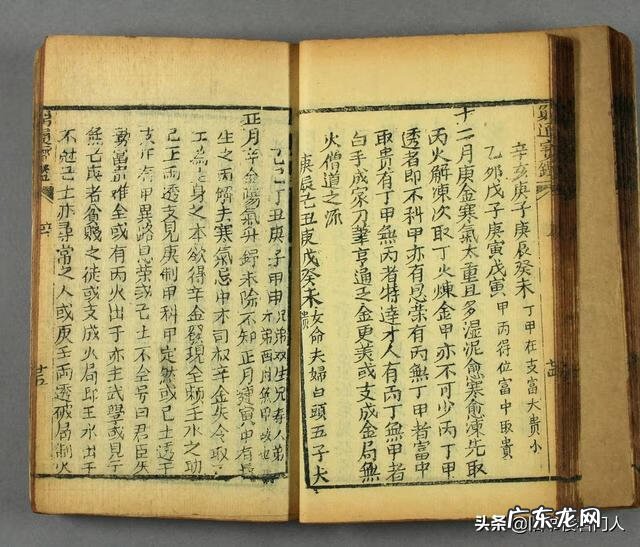 窮通寶鑑
辛亥庚子庚辰癸未 丁甲在支富大貴小
乙卯戊子庚寅戊寅 甲丙得位富中取貴
十二月庚金寒氣太重且多湿泥愈寒愈凍先取
丙火解凍次取丁火煉金甲亦不可少丙丁甲
透者即不科甲亦有恩荣有丙無丁甲者富中
取貴有丁甲無丙者特達才人有丙丁無甲者
白手成家刀筆亨通之金更美或支成金局無
火僧道之流
庚辰己丑庚戌癸未 女命夫婦白頭五子大貴
乙巳丁丑庚子甲申 兄弟双生兄寿人弟
正月辛金陽氣升舒未除不知正月建寅中有長
生之丙解去寒氣忌中木司权辛金失令取
己土為生身之本欲得辛金發現全頼壬水之功
己壬两透支見庚制甲科甲定然或己土透干
支中有甲異路恩荣或己土不全号曰君臣失
勢富貴难全或有丙火出干亦主武學或見壬
無己庚者貧賤之徒或支成火局即壬水出干
不尅己土亦尋常之人或庚壬两透破局制火
窮通寶鑑
头条
门人
广东龙网